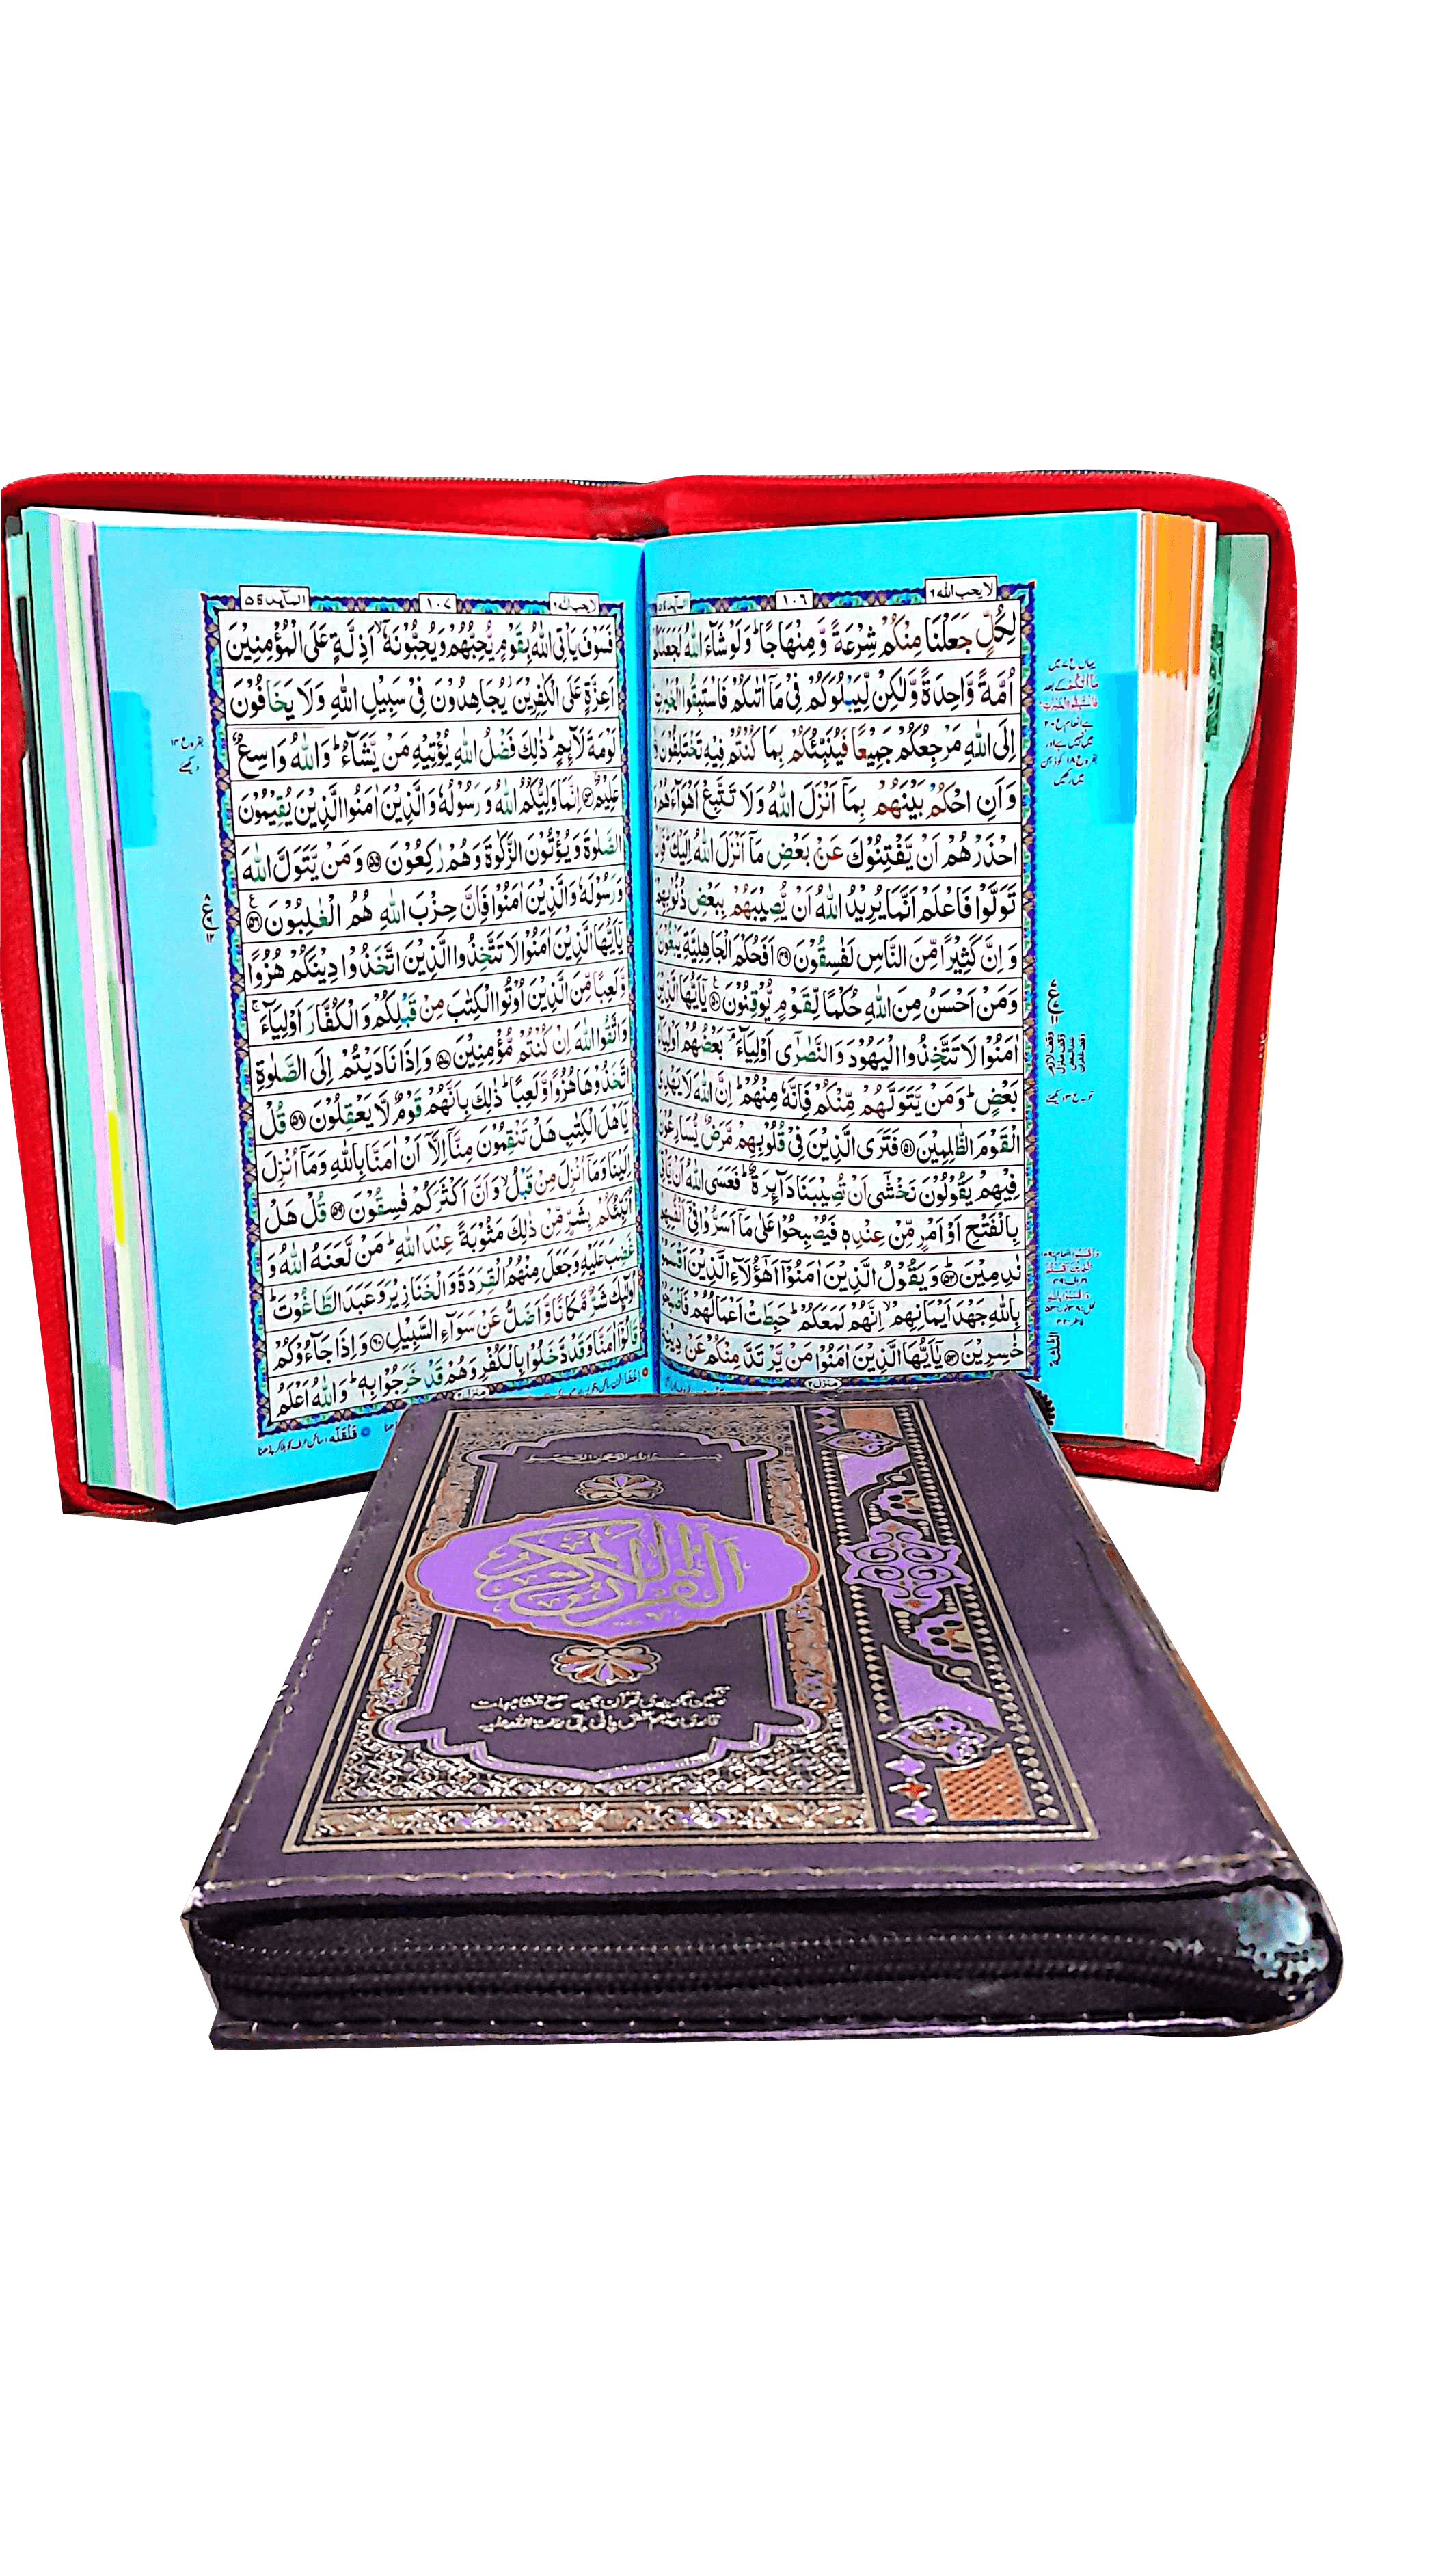 لا يحب الله ٦
١٠٦
المآىٕدة ٥
لِكُلٍّ جَعَلْنَا مِنْكُمْ شِرْعَةً وَّمِنْهَاجًا ؕ وَلَوْ شَآءَ اللّٰهُ لَجَعَلَكُمْ
اُمَّةً وَّاحِدَةً وَّلٰكِنْ لِّيَبْلُوَكُمْ فِىْ مَاۤ اٰتٰىكُمْ فَاسْتَبِقُوا الْخَيْرٰتِ
اِلَى اللّٰهِ مَرْجِعُكُمْ جَمِيْعًا فَيُنَبِّئُكُمْ بِمَا كُنْتُمْ فِيْهِ تَخْتَلِفُوْنَ
وَاَنِ احْكُمْ بَيْنَهُمْ بِمَاۤ اَنْزَلَ اللّٰهُ وَلَا تَتَّبِعْ اَهْوَآءَهُمْ
احْذَرْهُمْ اَنْ يَّفْتِنُوْكَ عَنْۢ بَعْضِ مَاۤ اَنْزَلَ اللّٰهُ اِلَيْكَ ؕ فَاِنْ
تَوَلَّوْا فَاعْلَمْ اَنَّمَا يُرِيْدُ اللّٰهُ اَنْ يُّصِيْبَهُمْ بِبَعْضِ ذُنُوْبِهِمْ
وَاِنَّ كَثِيْرًا مِّنَ النَّاسِ لَفٰسِقُوْنَ ۴۹ اَفَحُكْمَ الْجَاهِلِيَّةِ يَبْغُوْنَ
وَمَنْ اَحْسَنُ مِنَ اللّٰهِ حُكْمًا لِّقَوْمٍ يُّوْقِنُوْنَ ۵۰ يٰۤاَيُّهَا الَّذِيْنَ
اٰمَنُوْا لَا تَتَّخِذُوا الْيَهُوْدَ وَالنَّصٰرٰۤى اَوْلِيَآءَ ؔۘ بَعْضُهُمْ اَوْلِيَآءُ
بَعْضٍ ؕ وَمَنْ يَّتَوَلَّهُمْ مِّنْكُمْ فَاِنَّهٗ مِنْهُمْ ؕ اِنَّ اللّٰهَ لَا يَهْدِى
الْقَوْمَ الظّٰلِمِيْنَ ۵۱ فَتَرَى الَّذِيْنَ فِىْ قُلُوْبِهِمْ مَّرَضٌ يُّسَارِعُوْنَ
فِيْهِمْ يَقُوْلُوْنَ نَخْشٰٓى اَنْ تُصِيْبَنَا دَآىِٕرَةٌ ؕ فَعَسَى اللّٰهُ اَنْ يَّاْتِىَ
بِالْفَتْحِ اَوْ اَمْرٍ مِّنْ عِنْدِهٖ فَيُصْبِحُوْا عَلٰى مَاۤ اَسَرُّوْا فِىْۤ اَنْفُسِهِمْ
نٰدِمِيْنَ ۵۲ وَيَقُوْلُ الَّذِيْنَ اٰمَنُوْۤا اَهٰۤؤُلَآءِ الَّذِيْنَ اَقْسَمُوْا
بِاللّٰهِ جَهْدَ اَيْمَانِهِمْ ۙ اِنَّهُمْ لَمَعَكُمْ ؕ حَبِطَتْ اَعْمَالُهُمْ فَاَصْبَحُوْا
خٰسِرِيْنَ ۵۳ يٰۤاَيُّهَا الَّذِيْنَ اٰمَنُوْا مَنْ يَّرْتَدَّ مِنْكُمْ عَنْ دِيْنِهٖ
لا يحب الله ٦
١٠٧
المآىٕدة ٥
فَسَوْفَ يَاْتِى اللّٰهُ بِقَوْمٍ يُّحِبُّهُمْ وَيُحِبُّوْنَهٗۤ ۙ اَذِلَّةٍ عَلَى الْمُؤْمِنِيْنَ
اَعِزَّةٍ عَلَى الْكٰفِرِيْنَ ؗ يُجَاهِدُوْنَ فِىْ سَبِيْلِ اللّٰهِ وَلَا يَخَافُوْنَ
لَوْمَةَ لَآىِٕمٍ ؕ ذٰلِكَ فَضْلُ اللّٰهِ يُؤْتِيْهِ مَنْ يَّشَآءُ ؕ وَاللّٰهُ وَاسِعٌ
عَلِيْمٌ ۵۴ اِنَّمَا وَلِيُّكُمُ اللّٰهُ وَرَسُوْلُهٗ وَالَّذِيْنَ اٰمَنُوا الَّذِيْنَ يُقِيْمُوْنَ
الصَّلٰوةَ وَيُؤْتُوْنَ الزَّكٰوةَ وَهُمْ رٰكِعُوْنَ ۵۵ وَمَنْ يَّتَوَلَّ اللّٰهَ
وَرَسُوْلَهٗ وَالَّذِيْنَ اٰمَنُوْا فَاِنَّ حِزْبَ اللّٰهِ هُمُ الْغٰلِبُوْنَ ۵۶
يٰۤاَيُّهَا الَّذِيْنَ اٰمَنُوْا لَا تَتَّخِذُوا الَّذِيْنَ اتَّخَذُوْا دِيْنَكُمْ هُزُوًا
وَّلَعِبًا مِّنَ الَّذِيْنَ اُوْتُوا الْكِتٰبَ مِنْ قَبْلِكُمْ وَالْكُفَّارَ اَوْلِيَآءَ ۚ
وَاتَّقُوا اللّٰهَ اِنْ كُنْتُمْ مُّؤْمِنِيْنَ ۵۷ وَاِذَا نَادَيْتُمْ اِلَى الصَّلٰوةِ
اتَّخَذُوْهَا هُزُوًا وَّلَعِبًا ؕ ذٰلِكَ بِاَنَّهُمْ قَوْمٌ لَّا يَعْقِلُوْنَ ۵۸ قُلْ
يٰۤاَهْلَ الْكِتٰبِ هَلْ تَنْقِمُوْنَ مِنَّاۤ اِلَّاۤ اَنْ اٰمَنَّا بِاللّٰهِ وَمَاۤ اُنْزِلَ
اِلَيْنَا وَمَاۤ اُنْزِلَ مِنْ قَبْلُ ۙ وَاَنَّ اَكْثَرَكُمْ فٰسِقُوْنَ ۵۹ قُلْ هَلْ
اُنَبِّئُكُمْ بِشَرٍّ مِّنْ ذٰلِكَ مَثُوْبَةً عِنْدَ اللّٰهِ ؕ مَنْ لَّعَنَهُ اللّٰهُ وَ
غَضِبَ عَلَيْهِ وَجَعَلَ مِنْهُمُ الْقِرَدَةَ وَالْخَنَازِيْرَ وَعَبَدَ الطَّاغُوْتَ ؕ
اُولٰٓىِٕكَ شَرٌّ مَّكَانًا وَّاَضَلُّ عَنْ سَوَآءِ السَّبِيْلِ ۶۰ وَاِذَا جَآءُوْكُمْ
قَالُوْۤا اٰمَنَّا وَقَدْ دَّخَلُوْا بِالْكُفْرِ وَهُمْ قَدْ خَرَجُوْا بِهٖ ؕ وَاللّٰهُ اَعْلَمُ
القرآن الكريم